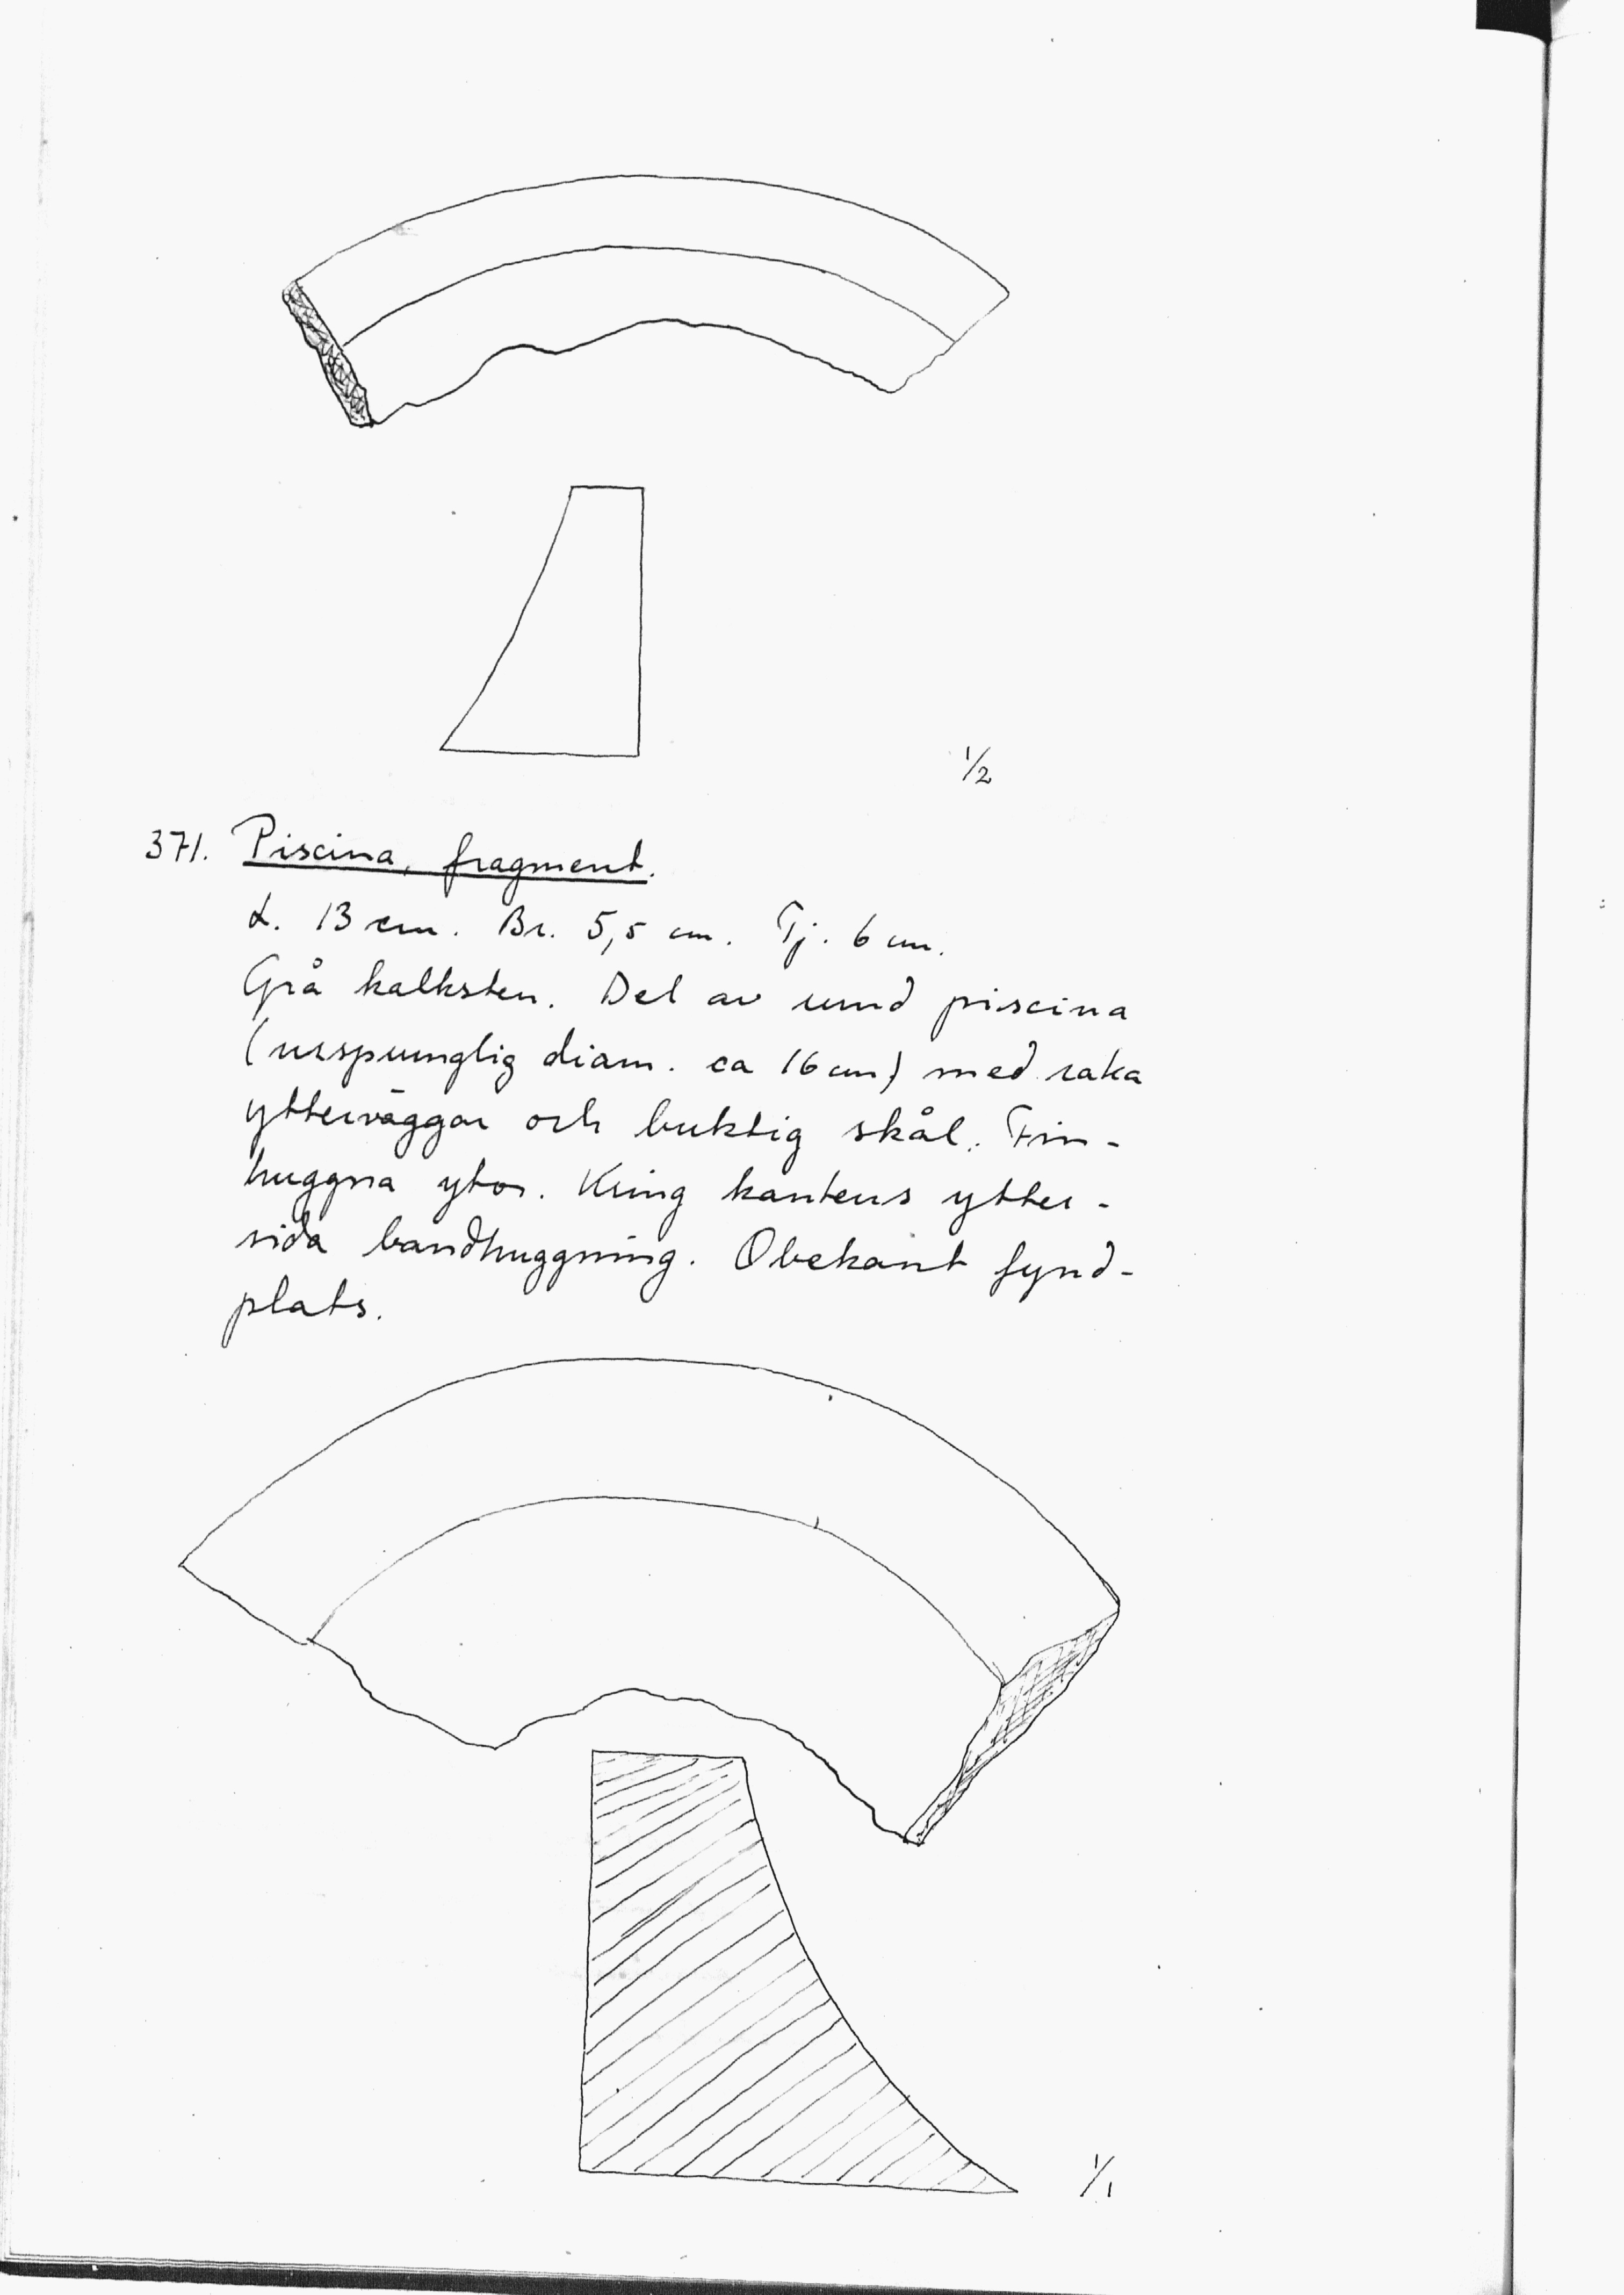 1/2
371. Piscina, fragment.
L. 13 cm. Br. 5,5 cm. Tj. 6 cm.
Grå kalksten. Del av rund piscina
(ursprunglig diam. ca 16 cm) med raka
ytterväggar och buktig skål. Fin-
huggna ytor. Kring kantens ytter-
sida bandhuggning. Obekant fynd-
plats.
1/1